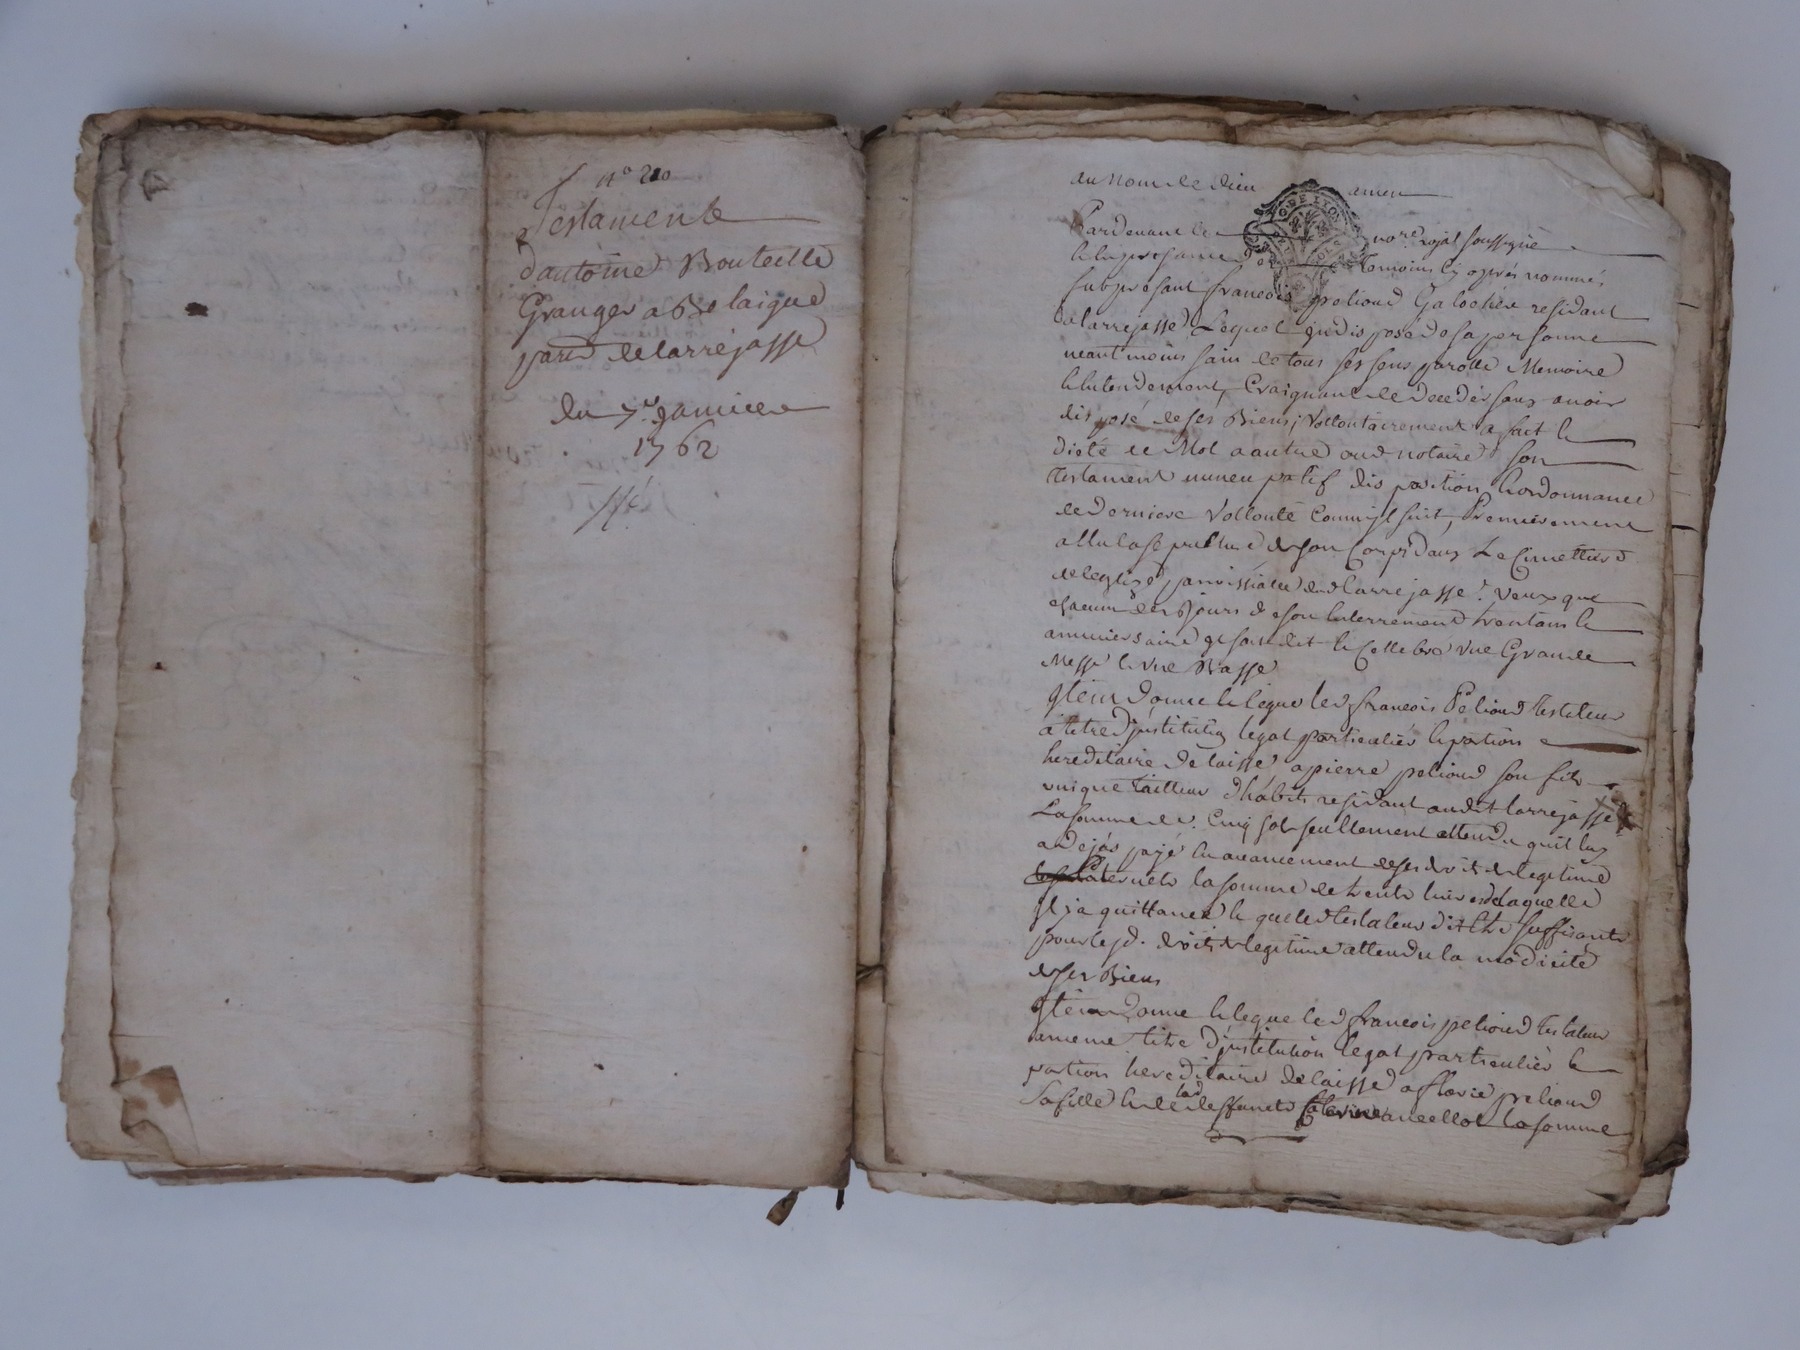 n° 210
Testament
d'antoine Bouteille
Granger a Belaigue
parr.d de larrejasse
du 7e janvier
1762
au nom de dieu amen
Pardevant le nore. royal soussigné
& En presance des temoins cy apres nommés
fut presant francois peliond Galochier residant
a larrejasse, Lequel indisposé de sa personne
neantmoins sain de tous ses sens parolle Memoire
& Entendement, Craignant de deceder sans avoir
disposé de ses Biens, Vollontairement a fait &
dicté de Mot a autre aud notaire son
testament nuncupatif disposition & ordonnance
de derniere Vollonté Comm'il suit, Premierement
a Elu la sepulture de son Corps dans Le Cimettiere
de leglise parroissialle dud larrejasse. Veux que
chacun des Jours de son Enterrement trentain &
anniversaire il soit dit & Cellebré Une Grande
Messe & Une Basse
Item donne & legue led francois Peliond testateur
a titre d'institution legat particulier & portion
hereditaire delaisse a pierre peliond son fils
unique tailleur d'habits residant audit larrejasse
La somme de Cinq sols seullement attendu qu'il luy
a dejas payé En avancement de ses droits de legitime
Paternels la somme de trente livres de laquelle
Il ja quittance & que led testateur dit Etre suffisante
pour lesd. droits de legitime attendu la modicité
de ses Biens
Item donne & legue led francois peliond testateur
a meme titre d'institution legat particulier &
portion hereditaire delaisse a florie peliond
sa fille & de lad deffunte Caterine ancellot La somme